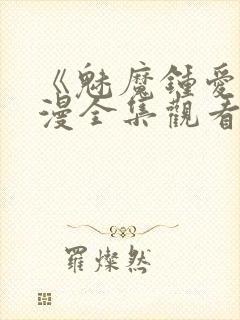 《魅魔鍾愛
漫全集觀看
羅燦然